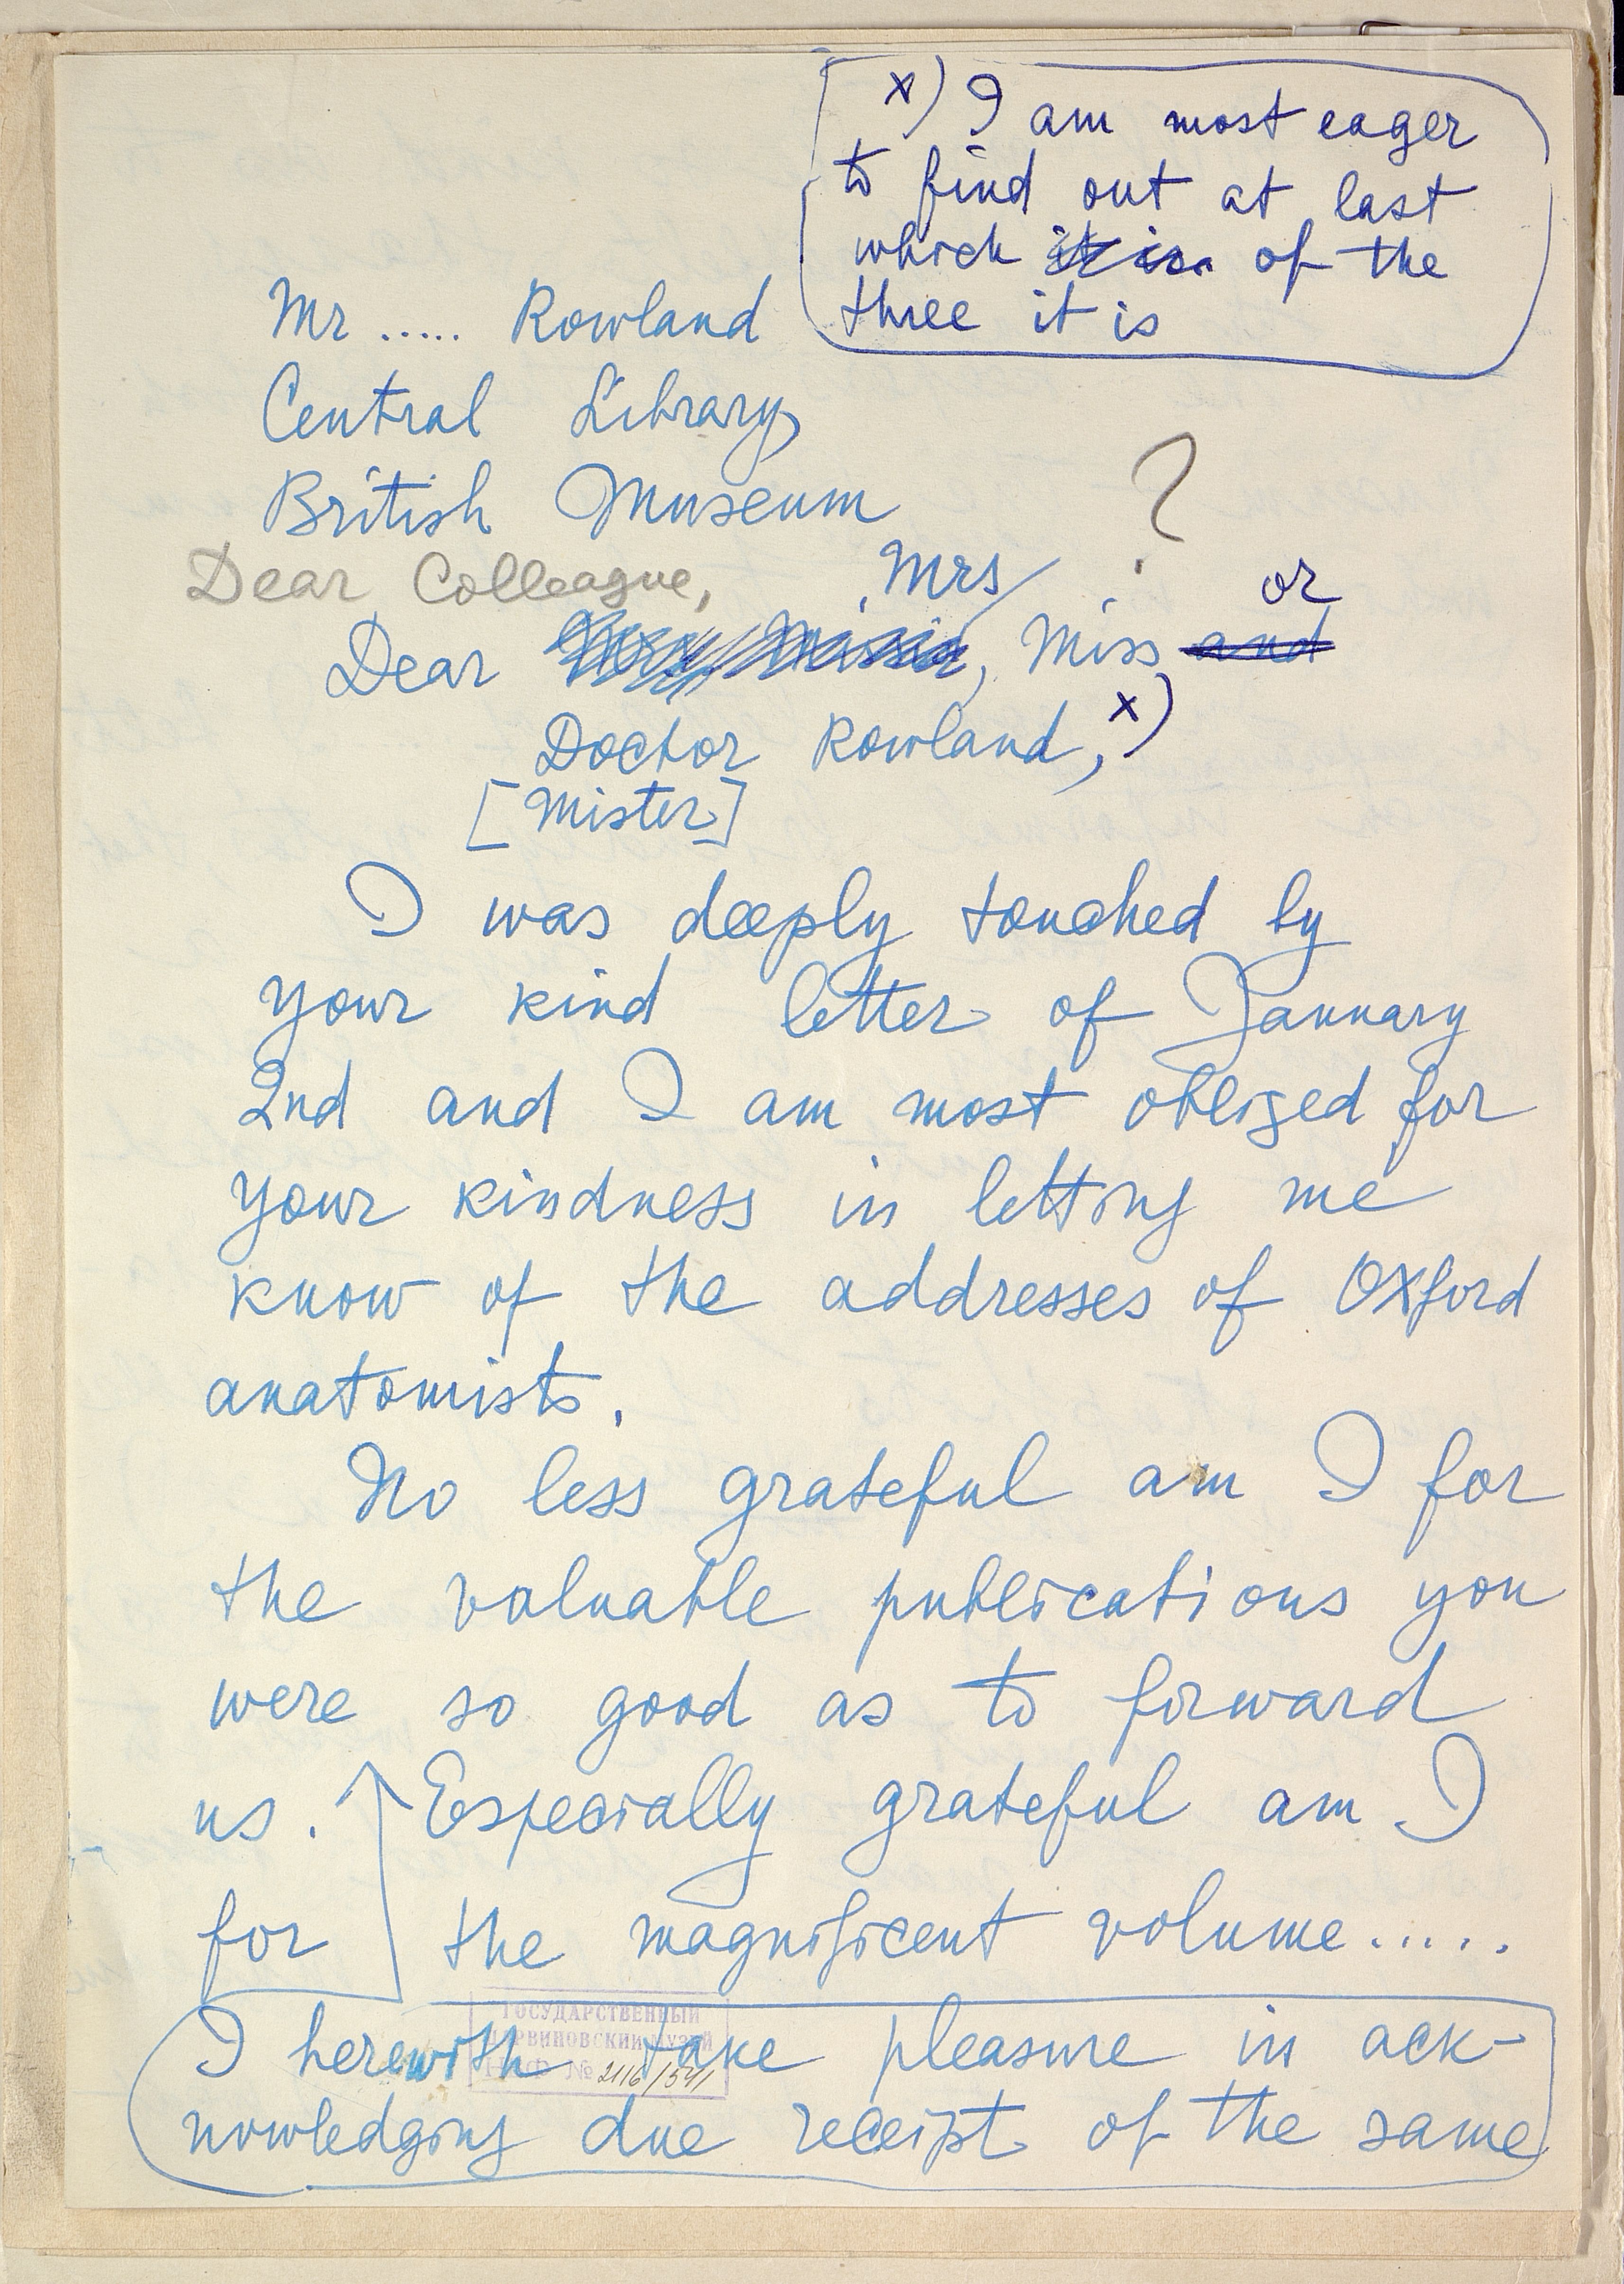 x) I am most eager
to find out at last
which it is of the
three it is
Mr ..... Rowland
Central Library
British Museum
?
Dear Colleague,
Mrs or
Dear , Miss and
Doctor Rowland, x)
[Mister]
I was deeply touched by
your kind letter of January
2nd and I am most obliged for
your kindness in letting me
know of the addresses of Oxford
anatomists.
No less grateful am I for
the valuable publications you
were so good as to forward
us. Especially grateful am I
for the magnificent volume.....
I herewith take pleasure in ack-
nowledging due receipt of the same
ГОСУДАРСТВЕННЫЙ
ДАРВИНОВСКИЙ МУЗЕЙ
№ 2116/541